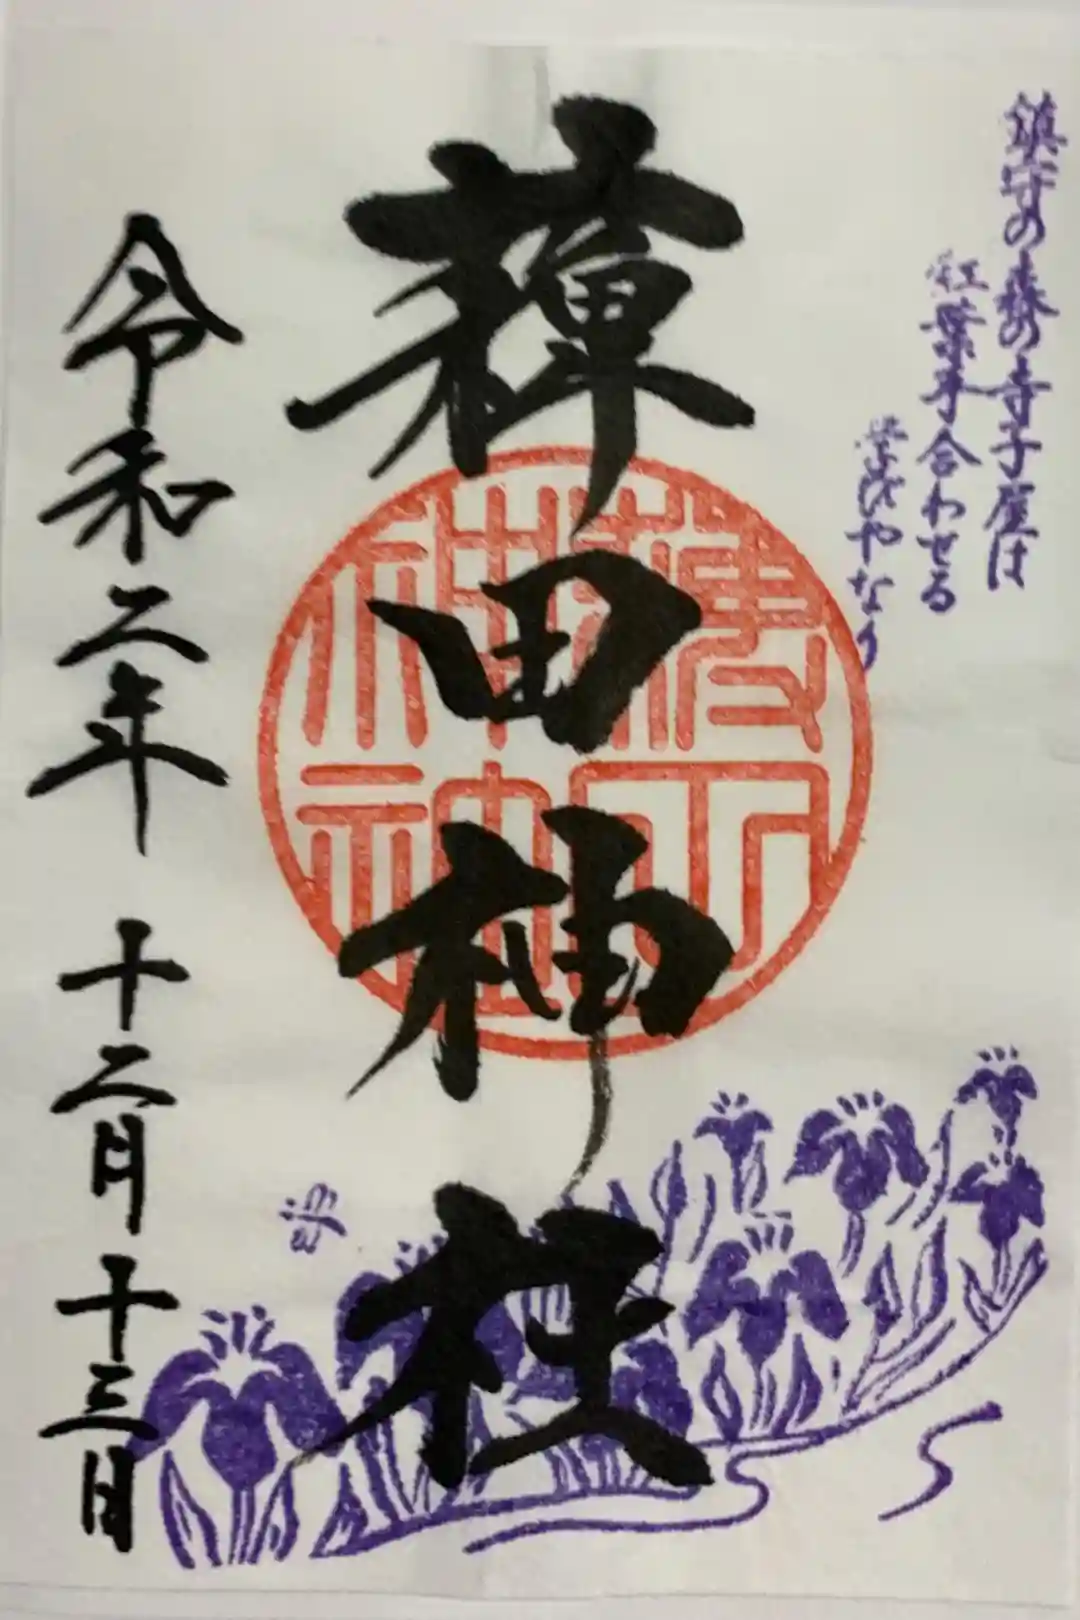 鎮守の森の寺子屋は
紅葉手合わせる
学びやなり
薭田神社
令和二年 十二月十三日